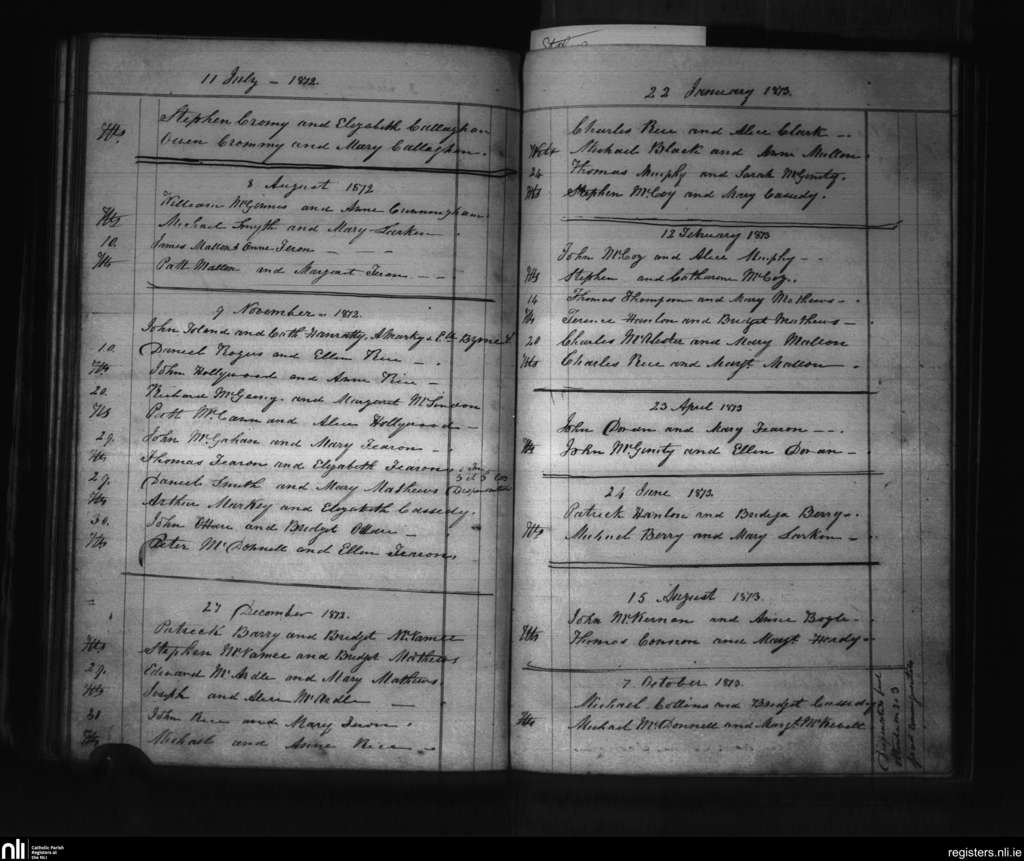 11 July - 1872.
Stephen Cromy and Elizabeth Callaghan
Wts. Owen Crommy and Mary Callaghan.
8 August 1872
William McGinnes and Anne Cunningham.
Wts Michael Smyth and Mary Larken -
10. James Mallon & Anne Feron - -
Wts Patt Mallon and Margaret Feron - -
9 November - 1872.
John Toland and Cath Hanratty,
10. Daniel Rogers and Ellen Rice - -
Wts. John Hollywood and Anne Rice -
20. Richard and Margaret
Wts Patt McCann and Alice Hollywood -
29. John McGahan and Mary Fearon - -
Wts Thomas Fearon and Elizabeth Fearon
29. Daniel Smith and Mary Mathews
Wts Arthur Markey and Elizabeth Cassedy.
30. John O'Hare and Bridget O'Hare -
Wts Peter McDonnell and Ellen Fearon.
27 December 1872.
Patrick Barry and Bridget McKamee
Wts Stephen McKamee and Bridget Mathews
29. Edward McArdle and Mary Mathews.
Wts Joseph and Alice McArdle -
31 John Rice and Mary
Wts Michael and Anne Rice -
22 January 1873.
Charles Rice and Alice Clark - -
Wits Michael Black and Anne Mallon.
24 Thomas Murphy and Sarah McGinity.
Wts Stephen McCoy and Mary Cassedy.
12 February 1873
John McCoy and Alice Murphy - -
Wts Stephen and Catharine McCoy.
14 Thomas Thompson and Mary Mathews -
Wts Terence Hanlon and Bridget Mathews -
20 Charles McAlester and Mary Mallon
Wts Charles Rice and Margt Mallon -
23 April 1873
John Donan and Mary Fearon - -
Wts John McGinity and Ellen Donan -
24 June 1873.
Patrick Hanlon and Berry -
Wts Michael Berry and Mary Larkin -
15 August 1873.
John McKernan and Anne Boyle -
Wts Thomas and Margt -
7. October 1873.
Michael Collins and Bridget Cassedy
Wts Michael McDonnell and Margt
nli
Catholic Parish
Registers at
the NLI
registers.nli.ie